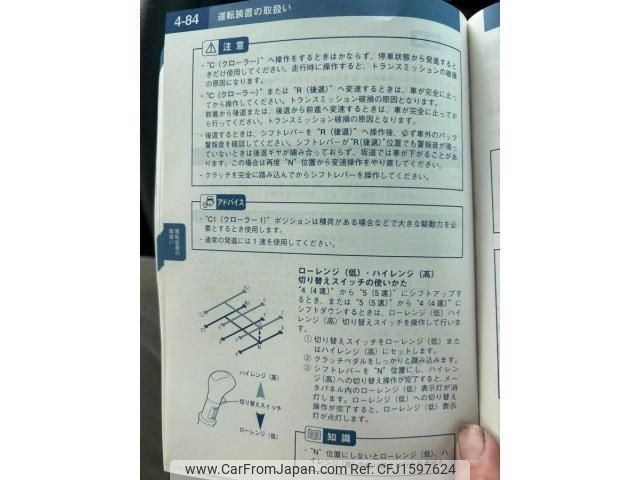 4-84
運転装置の取扱い
注 意
・"C（クローラー）"へ操作をするときはかならず、停車状態から発進すると
きだけ使用してください。走行時に操作すると、トランスミッションの破損
の原因になります。
・"C（クローラー）"または"R（後退）"へ変速するときは、車が完全に止っ
てから操作してください。トランスミッション破損の原因となります。
前進から後退または、後退から前進へ変速するときは、車が完全に止ってか
ら行ってください。トランスミッション破損の原因となります。
・後退するときは、シフトレバーを"R（後退）"へ操作後、必ず車外のバック
警報音を確認してください。シフトレバーが"R（後退）"位置でも警報音が鳴っ
ていないときは後退ギヤが噛み合っておらず、坂道では車が下がることがあ
ります。この場合は再度"N"位置から変速操作をやり直してください。
・クラッチを完全に踏み込んでからシフトレバーを操作してください。
アドバイス
・"C1（クローラー1）"ポジションは積荷がある場合などで大きな駆動力を必
要とするとき使用します。
・通常の発進には1速を使用してください。
運転装置の
取扱い
ローレンジ（低）・ハイレンジ（高）
切り替えスイッチの使いかた
"4（4速）"から"5（5速）"にシフトアップす
るとき、または"5（5速）"から"4（4速）"に
シフトダウンするときは、ローレンジ（低）ハイ
レンジ（高）切り替えスイッチを操作して行いま
す。
① 切り替えスイッチをローレンジ（低）また
はハイレンジ（高）にセットします。
② クラッチペダルをしっかりと踏み込みます。
③ シフトレバーを"N"位置にし、ハイレン
ジ（高）への切り替え操作が完了すると、メー
タパネル内のローレンジ（低）表示灯が消
灯します。ローレンジ（低）への切り替え
操作が完了すると、ローレンジ（低）表示
灯が点灯します。
ハイレンジ（高）
切り替えスイッチ
ローレンジ（低）
知 識
・"N"位置にしないとローレンジ（低）、ハ
www.CarFromJapan.com - CFJ1597624